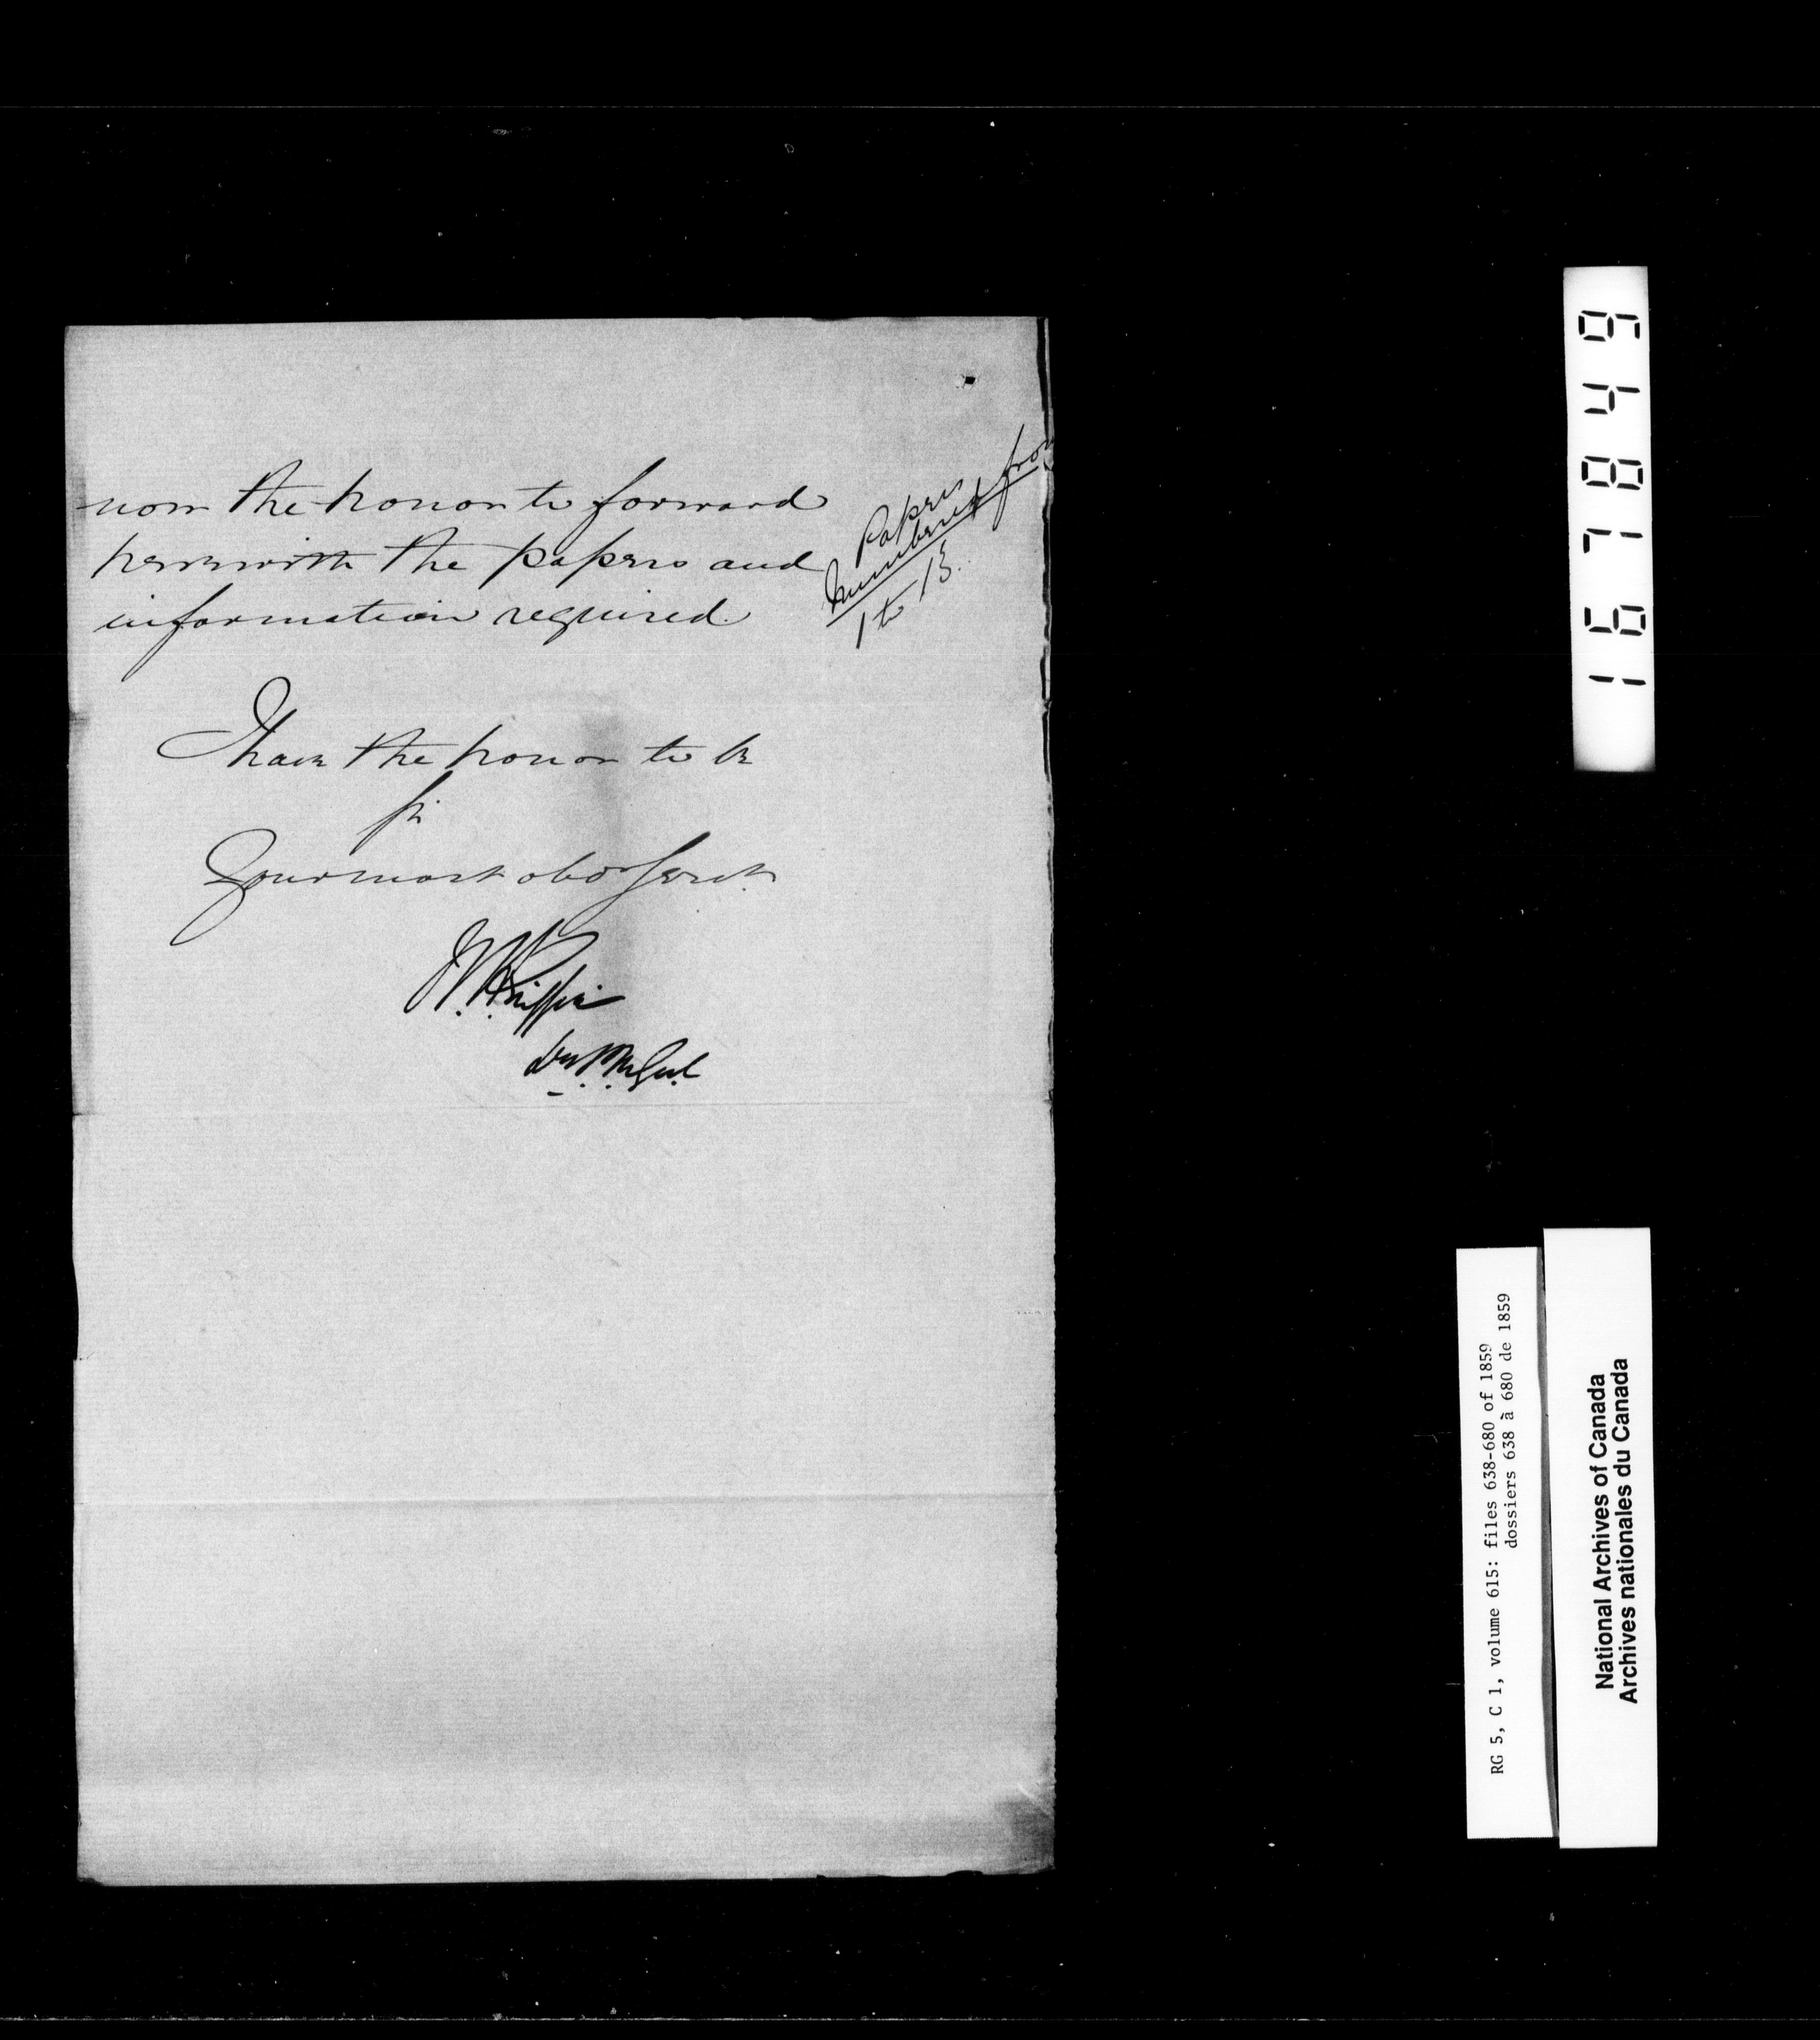 now the honor to forward
herewith the papers and
information required.
Papers
numbered from
1 to 13.
I have the honor to be
Sir
Your most obdt Servt
W. H. Griffin
167849
RG 5, C 1, volume 615: files 638-680 of 1859
dossiers 638 à 680 de 1859
National Archives of Canada
Archives nationales du Canada